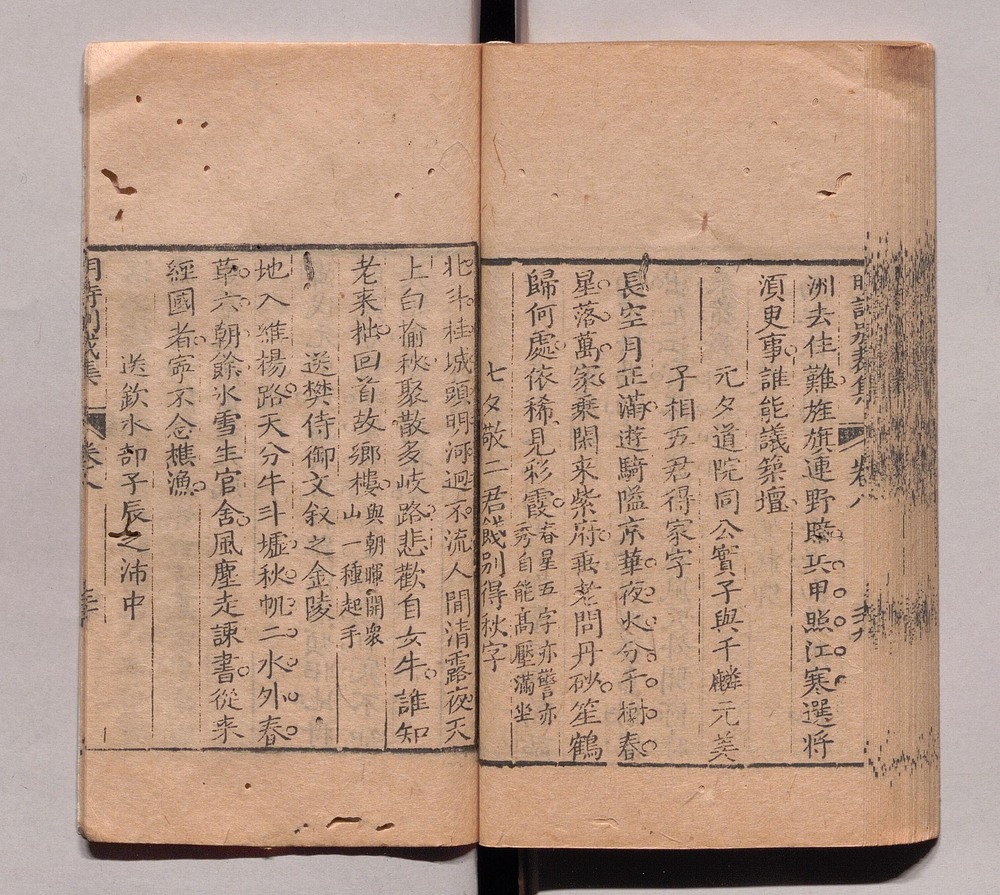 明詩別裁集 卷八
洲去住難旌旗連野曉兵甲照江寒選将
湏吏事誰能議築壇
元夕道院同公實子與于鱗元美
子相五君得家字
長空月正滿遊騎隘京華夜火分千樹春
星落萬家乘閑来紫府垂老問丹砂笙鶴
歸何處依稀見彩霞春星五字亦警亦
秀自能高壓滿坐
七夕敬二君餞别得秋字
北斗桂城頭明河迥不流人間清露夜天
上白榆秋聚散多岐路悲歡自女牛誰知
老来拙回首故鄉樓與朝暉開衆
山一種起手
送樊侍御文叙之金陵
地入維楊路天分牛斗墟秋帆二水外春
草六朝餘氷雪生官舍風塵走諫書從来
經國者寧不念樵漁
送欽水部子辰之沛中
明詩別裁集 卷八